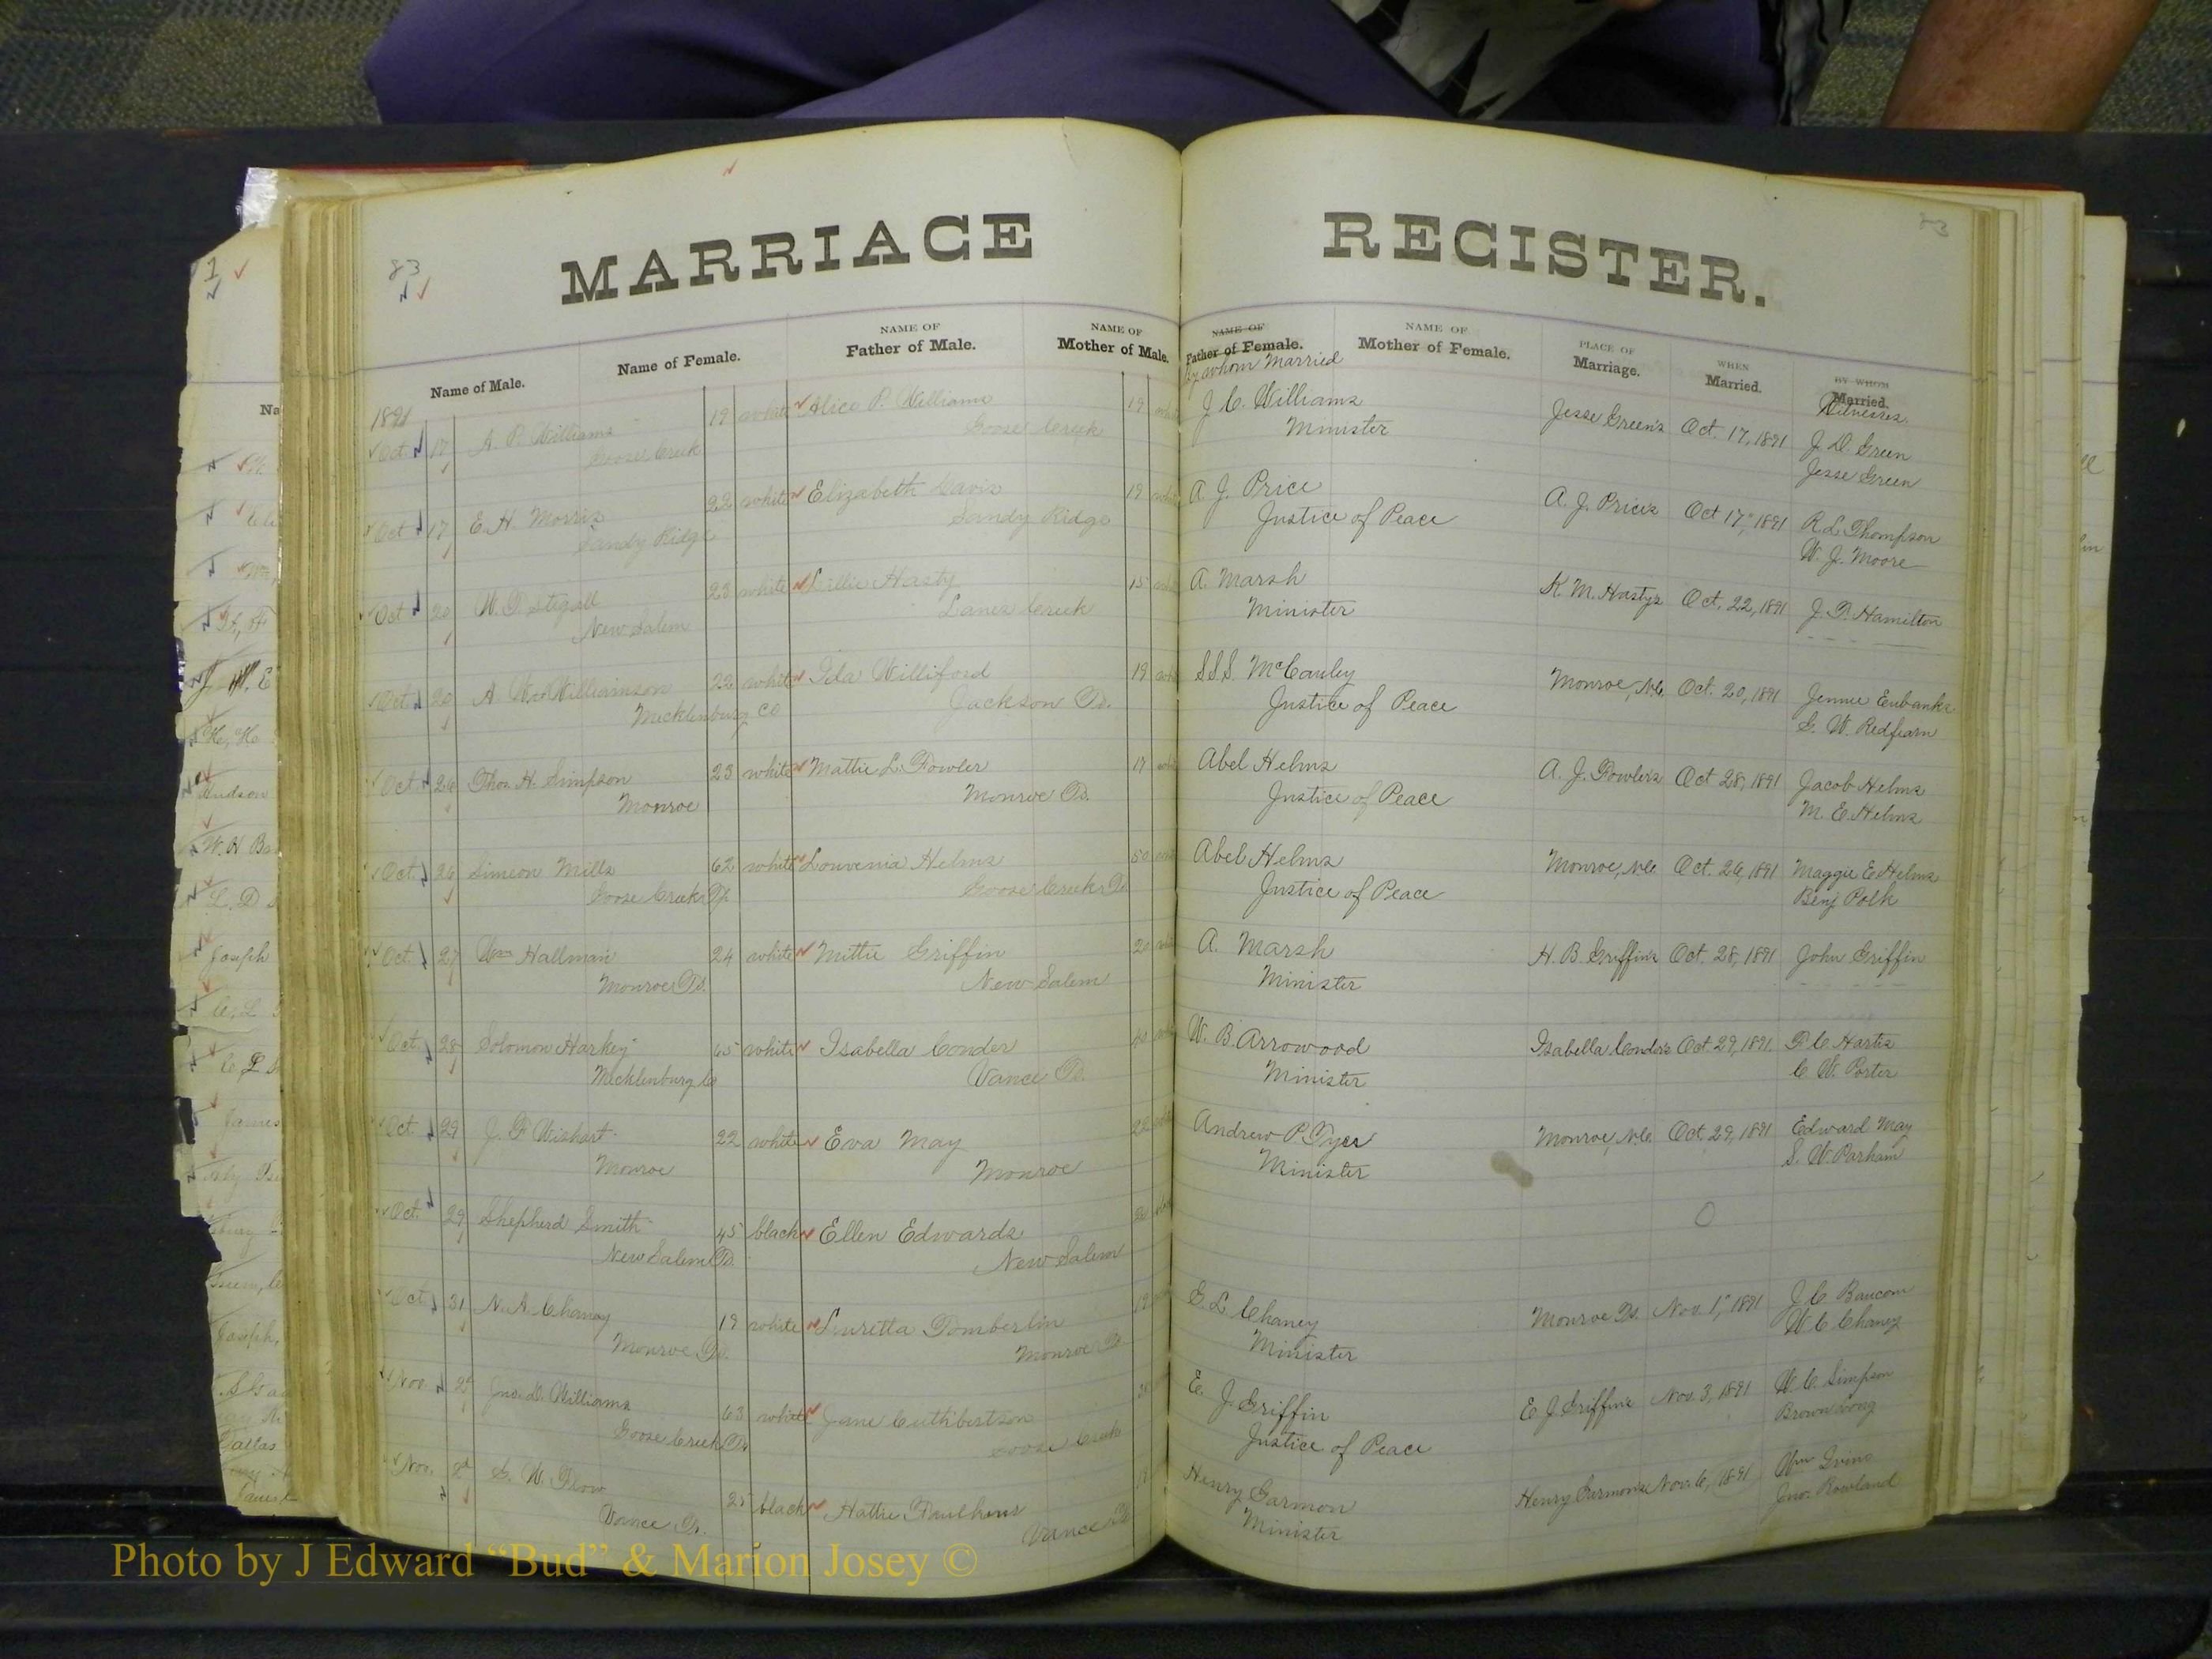 83
83
MARRIAGE REGISTER.
Name of Male.
Name of Female.
NAME OF
Father of Male.
NAME OF
Mother of Male.
NAME OF
Father of Female.
By whom Married
NAME OF
Mother of Female.
PLACE OF
Marriage.
WHEN
Married.
BY WHOM
Married.
Witnesses.
1891
Oct. 17 A. P. Williams 19 white Alice P. Williams 19 J. C. Williams Jesse Green's Oct. 17, 1891 J. D. Green
Goose Creek Goose Creek Minister Jesse Green
Oct 17 E. H. Morris 22 white Elizabeth Davis 19 A. J. Price A. J. Price's Oct 17, 1891 R. L. Thompson
Sandy Ridge Sandy Ridge Justice of Peace W. J. Moore
Oct 20 W. T. Stegall 23 white Lillie Hasty 15 A. Marsh K. M. Hasty's Oct. 22, 1891 J. T. Hamilton
New Salem Lanes Creek Minister
Oct. 20 A. Williamson 22 white Ida Williford 19 S.S.S. McCauley Monroe, N.C. Oct. 20, 1891 Jennie Eubanks
Mecklenburg Co Jackson Tp. Justice of Peace G. W. Redfearn
Oct. 26 Thos. H. Simpson 23 white Mattie L. Fowler Abel Helms A. J. Fowler's Oct 28, 1891 Jacob Helms
Monroe Monroe Tp. Justice of Peace M. E. Helms
Oct. 26 Simeon Mills 62 white Louvenia Helms 50 Abel Helms Monroe, N.C. Oct. 26, 1891 Maggie E. Helms
Goose Creek Tp. Goose Creek Tp Justice of Peace Benj Polk
Oct. 27 Wm Hallman 24 white Mittie Griffin 20 A. Marsh H. B. Griffin's Oct. 28, 1891 John Griffin
Monroe Tp. New Salem Minister
Oct. 28 Solomon Harkey 65 white Isabella Conder 40 W. B. Arrowood Isabella Conder's Oct 29, 1891 F. C. Hartis
Mecklenburg Co Vance Tp. Minister C. W. Porter
Oct. 29 J. F. Wishart 22 white Eva May 22 Andrew P. Tyer Monroe, N.C. Oct. 29, 1891 Edward May
Monroe Monroe Minister S. W. Parham
Oct. 29 Shepherd Smith 45 black Ellen Edwards
New Salem Tp. New Salem
Oct. 31 N. A. Chaney 19 white Luretta Tomberlin 19 G. L. Chaney Monroe Tp. Nov. 1, 1891 J. C. Baucom
Monroe Tp. Monroe Tp Minister W. C. Chaney
Nov. 2 Jno. D. Williams 63 white Jane Cuthbertson E. J. Griffin E. J. Griffin's Nov. 3, 1891 Simpson
Goose Creek Tp. Goose Creek Justice of Peace Brown Long
Nov. G. W. Flow 25 black Hattie Henry Garmon Henry Garmon's Nov. 6, 1891 Wm
Vance Tp. Vance Tp Minister Jno. Rowland
Photo by J Edward “Bud” & Marion Josey ©